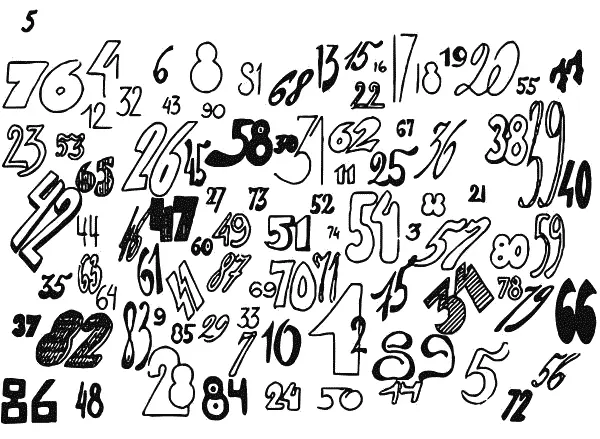 5
76 4 6 8 S1 68 13 15 16 17 18 19 20 55 77
12 32 43 90 22
23 53 65 26 45 58 30 31 62 11 67 25 36 38 39 40
42 44 46 47 27 73 60 49 51 52 74 54 3 88 21 57 80 59
35 63 64 61 87 69 70 71 75 78 79 66
37 82 83 9 85 29 33 7 10 1 2 89 5 56
86 48 28 84 24 50 44 72